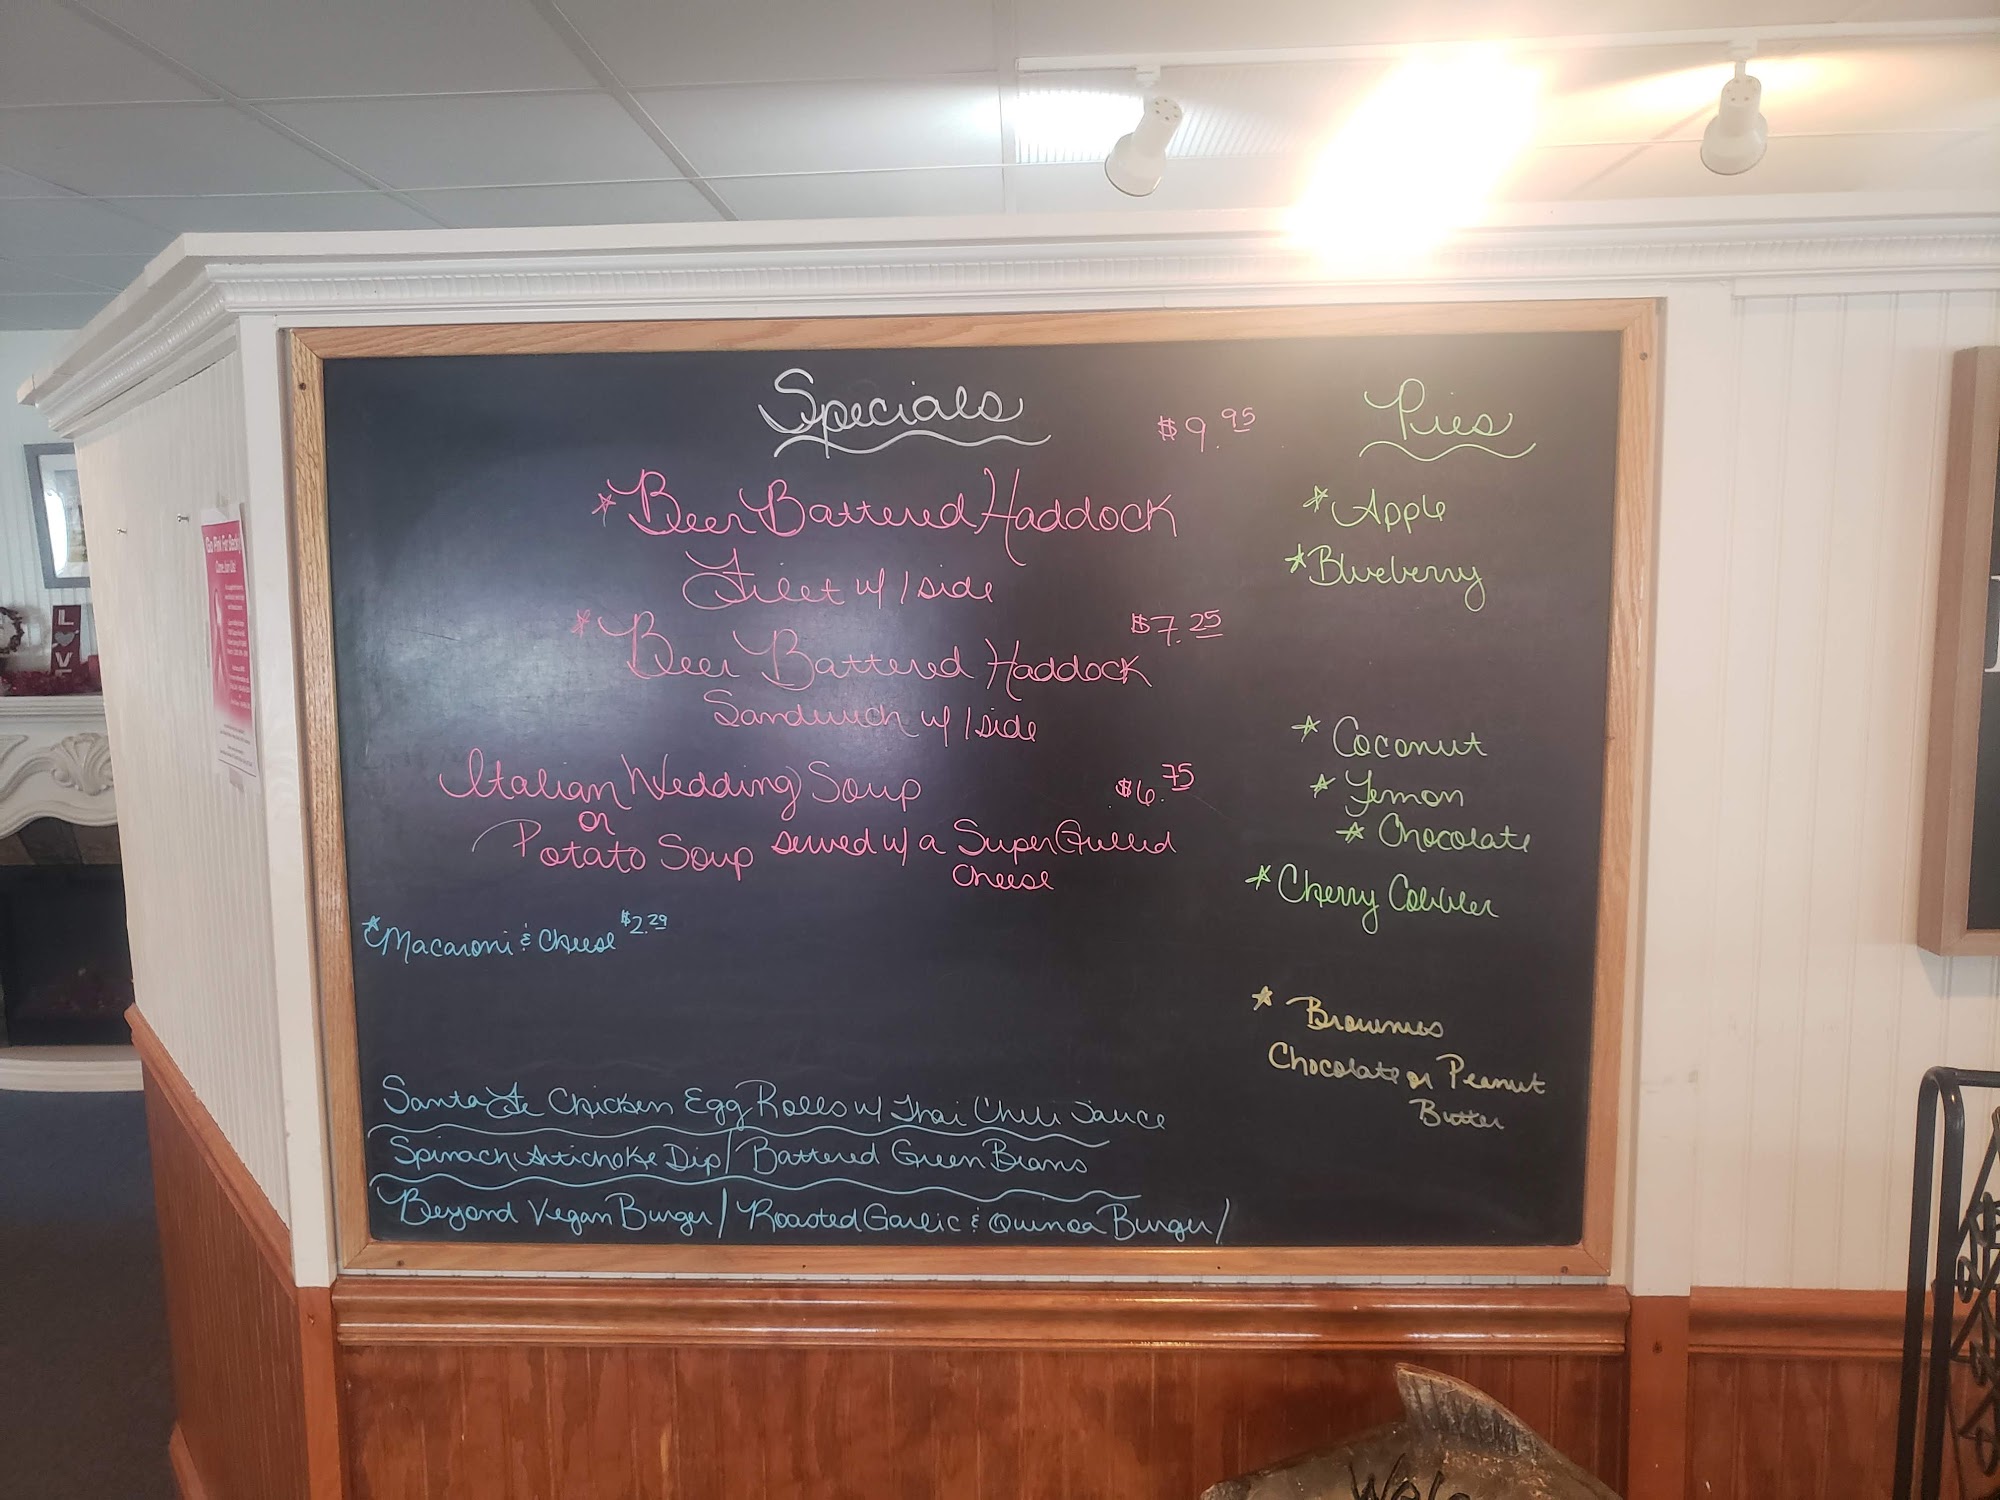 Specials
$9.95
*Beer Battered Haddock
Filet w/ 1 side
*Beer Battered Haddock $7.25
Sandwich w/ 1 side
Italian Wedding Soup $6.75
or
Potato Soup served w/ a Super Grilled
Cheese
*Macaroni & Cheese $2.29
Santa Fe Chicken Egg Rolls w/ Thai Chili Sauce
Spinach Artichoke Dip / Battered Green Beans
Beyond Vegan Burger / Roasted Garlic & Quinoa Burger /
Pies
*Apple
*Blueberry
*Coconut
*Lemon
*Chocolate
*Cherry Cobbler
*Brownies
Chocolate or Peanut
Butter
Go Pink For Becky!
LOVE